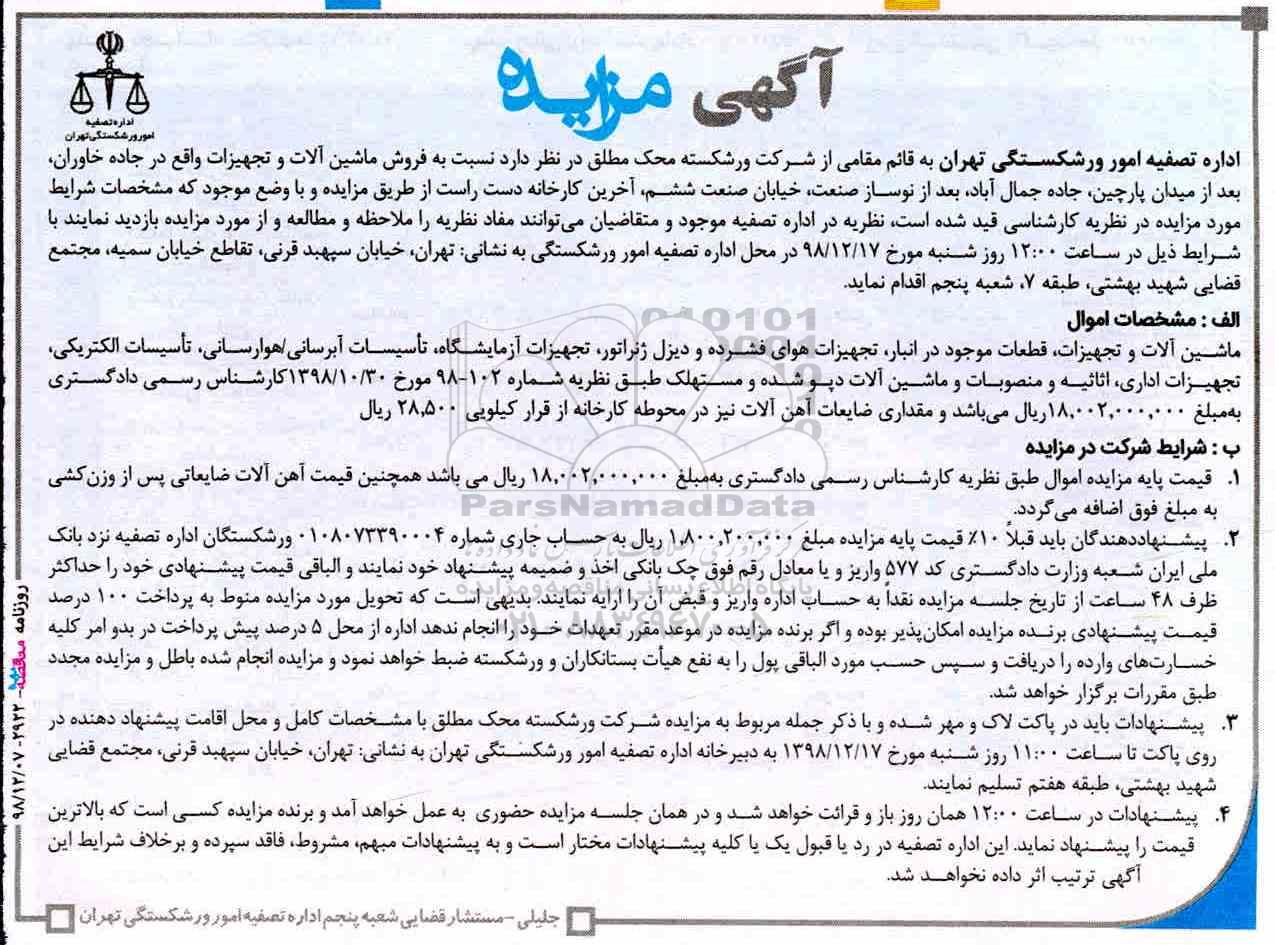 آگهی مزایده
اداره تصفیه
امور ورشکستگی تهران
اداره تصفیه امور ورشکستگی تهران به قائم مقامی از شرکت ورشکسته محک مطلق در نظر دارد نسبت به فروش ماشین آلات و تجهیزات واقع در جاده خاوران،
بعد از میدان پارچین، جاده جمال آباد، بعد از نوساز صنعت، خیابان صنعت ششم، آخرین کارخانه دست راست از طریق مزایده و با وضع موجود که مشخصات شرایط
مورد مزایده در نظریه کارشناسی قید شده است، نظریه در اداره تصفیه موجود و متقاضیان می‌توانند مفاد نظریه را ملاحظه و مطالعه و از مورد مزایده بازدید نمایند با
شرایط ذیل در ساعت ۱۲:۰۰ روز شنبه مورخ ۹۸/۱۲/۱۷ در محل اداره تصفیه امور ورشکستگی به نشانی: تهران، خیابان سپهبد قرنی، تقاطع خیابان سمیه، مجتمع
قضایی شهید بهشتی، طبقه ۷، شعبه پنجم اقدام نماید.
الف : مشخصات اموال
ماشین آلات و تجهیزات، قطعات موجود در انبار، تجهیزات هوای فشرده و دیزل ژنراتور، تجهیزات آزمایشگاه، تأسیسات آبرسانی/هوارسانی، تأسیسات الکتریکی،
تجهیزات اداری، اثاثیه و منصوبات و ماشین آلات دپو شده و مستهلک طبق نظریه شماره ۱۰۲-۹۸ مورخ ۱۳۹۸/۱۰/۳۰کارشناس رسمی دادگستری
به‌مبلغ ۱۸,۰۰۲,۰۰۰,۰۰۰ریال می‌باشد و مقداری ضایعات آهن آلات نیز در محوطه کارخانه از قرار کیلویی ۲۸,۵۰۰ ریال
ب : شرایط شرکت در مزایده
۱. قیمت پایه مزایده اموال طبق نظریه کارشناس رسمی دادگستری به‌مبلغ ۱۸,۰۰۲,۰۰۰,۰۰۰ ریال می باشد همچنین قیمت آهن آلات ضایعاتی پس از وزن‌کشی
به مبلغ فوق اضافه می‌گردد.
۲. پیشنهاددهندگان باید قبلاً ۱۰٪ قیمت پایه مزایده مبلغ ۱,۸۰۰,۲۰۰,۰۰۰ ریال به حساب جاری شماره ۰۱۰۸۰۷۳۳۹۰۰۰۴ ورشکستگان اداره تصفیه نزد بانک
ملی ایران شعبه وزارت دادگستری کد ۵۷۷ واریز و یا معادل رقم فوق چک بانکی اخذ و ضمیمه پیشنهاد خود نمایند و الباقی قیمت پیشنهادی خود را حداکثر
ظرف ۴۸ ساعت از تاریخ جلسه مزایده نقداً به حساب اداره واریز و قبض آن را ارایه نمایند. بدیهی است که تحویل مورد مزایده منوط به پرداخت ۱۰۰ درصد
قیمت پیشنهادی برنده مزایده امکان‌پذیر بوده و اگر برنده مزایده در موعد مقرر تعهدات خود را انجام ندهد اداره از محل ۵ درصد پیش پرداخت در بدو امر کلیه
خسارت‌های وارده را دریافت و سپس حسب مورد الباقی پول را به نفع هیأت بستانکاران و ورشکسته ضبط خواهد نمود و مزایده انجام شده باطل و مزایده مجدد
طبق مقررات برگزار خواهد شد.
۳. پیشنهادات باید در پاکت لاک و مهر شده و با ذکر جمله مربوط به مزایده شرکت ورشکسته محک مطلق با مشخصات کامل و محل اقامت پیشنهاد دهنده در
روی پاکت تا ساعت ۱۱:۰۰ روز شنبه مورخ ۱۳۹۸/۱۲/۱۷ به دبیرخانه اداره تصفیه امور ورشکستگی تهران به نشانی: تهران، خیابان سپهبد قرنی، مجتمع قضایی
شهید بهشتی، طبقه هفتم تسلیم نمایند.
۴. پیشنهادات در ساعت ۱۲:۰۰ همان روز باز و قرائت خواهد شد و در همان جلسه مزایده حضوری به عمل خواهد آمد و برنده مزایده کسی است که بالاترین
قیمت را پیشنهاد نماید. این اداره تصفیه در رد یا قبول یک یا کلیه پیشنهادات مختار است و به پیشنهادات مبهم، مشروط، فاقد سپرده و برخلاف شرایط این
آگهی ترتیب اثر داده نخواهد شد.
جلیلی -مستشار قضایی شعبه پنجم اداره تصفیه امور ورشکستگی تهران
روزنامه مناقصه- ۲۹۲۲- ۹۸/۱۲/۰۷
ParsNamadData
پایگاه اطلاع رسانی مناقصه و مزایده